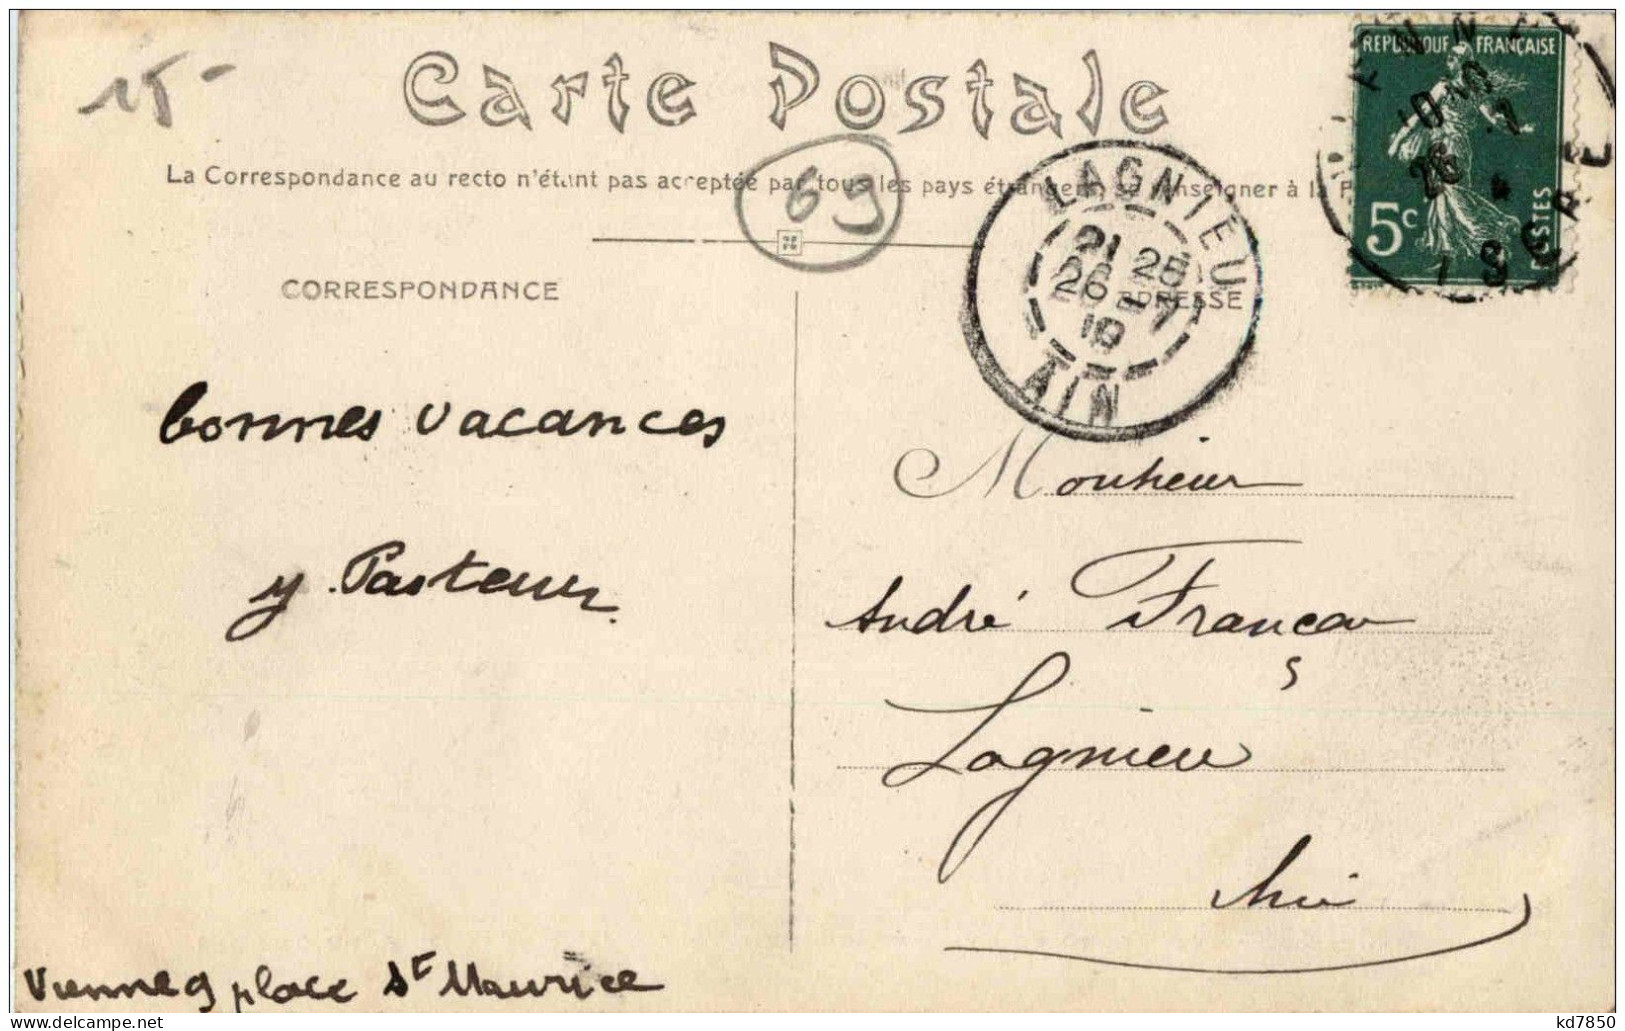 15-
Carte Postale
La Correspondance au recto n'étant pas acceptée par tous les pays étrangers, se renseigner à la
69
RÉPUBLIQUE FRANÇAISE
5c
POSTES
ISÈRE
LAGNIEU
21 25
26 - 7
10
AIN
CORRESPONDANCE
ADRESSE
bonnes vacances
y. Pasteur.
Monsieur
André
Lagnieu
Ain
Vienne 9 place St Maurice
kd7850